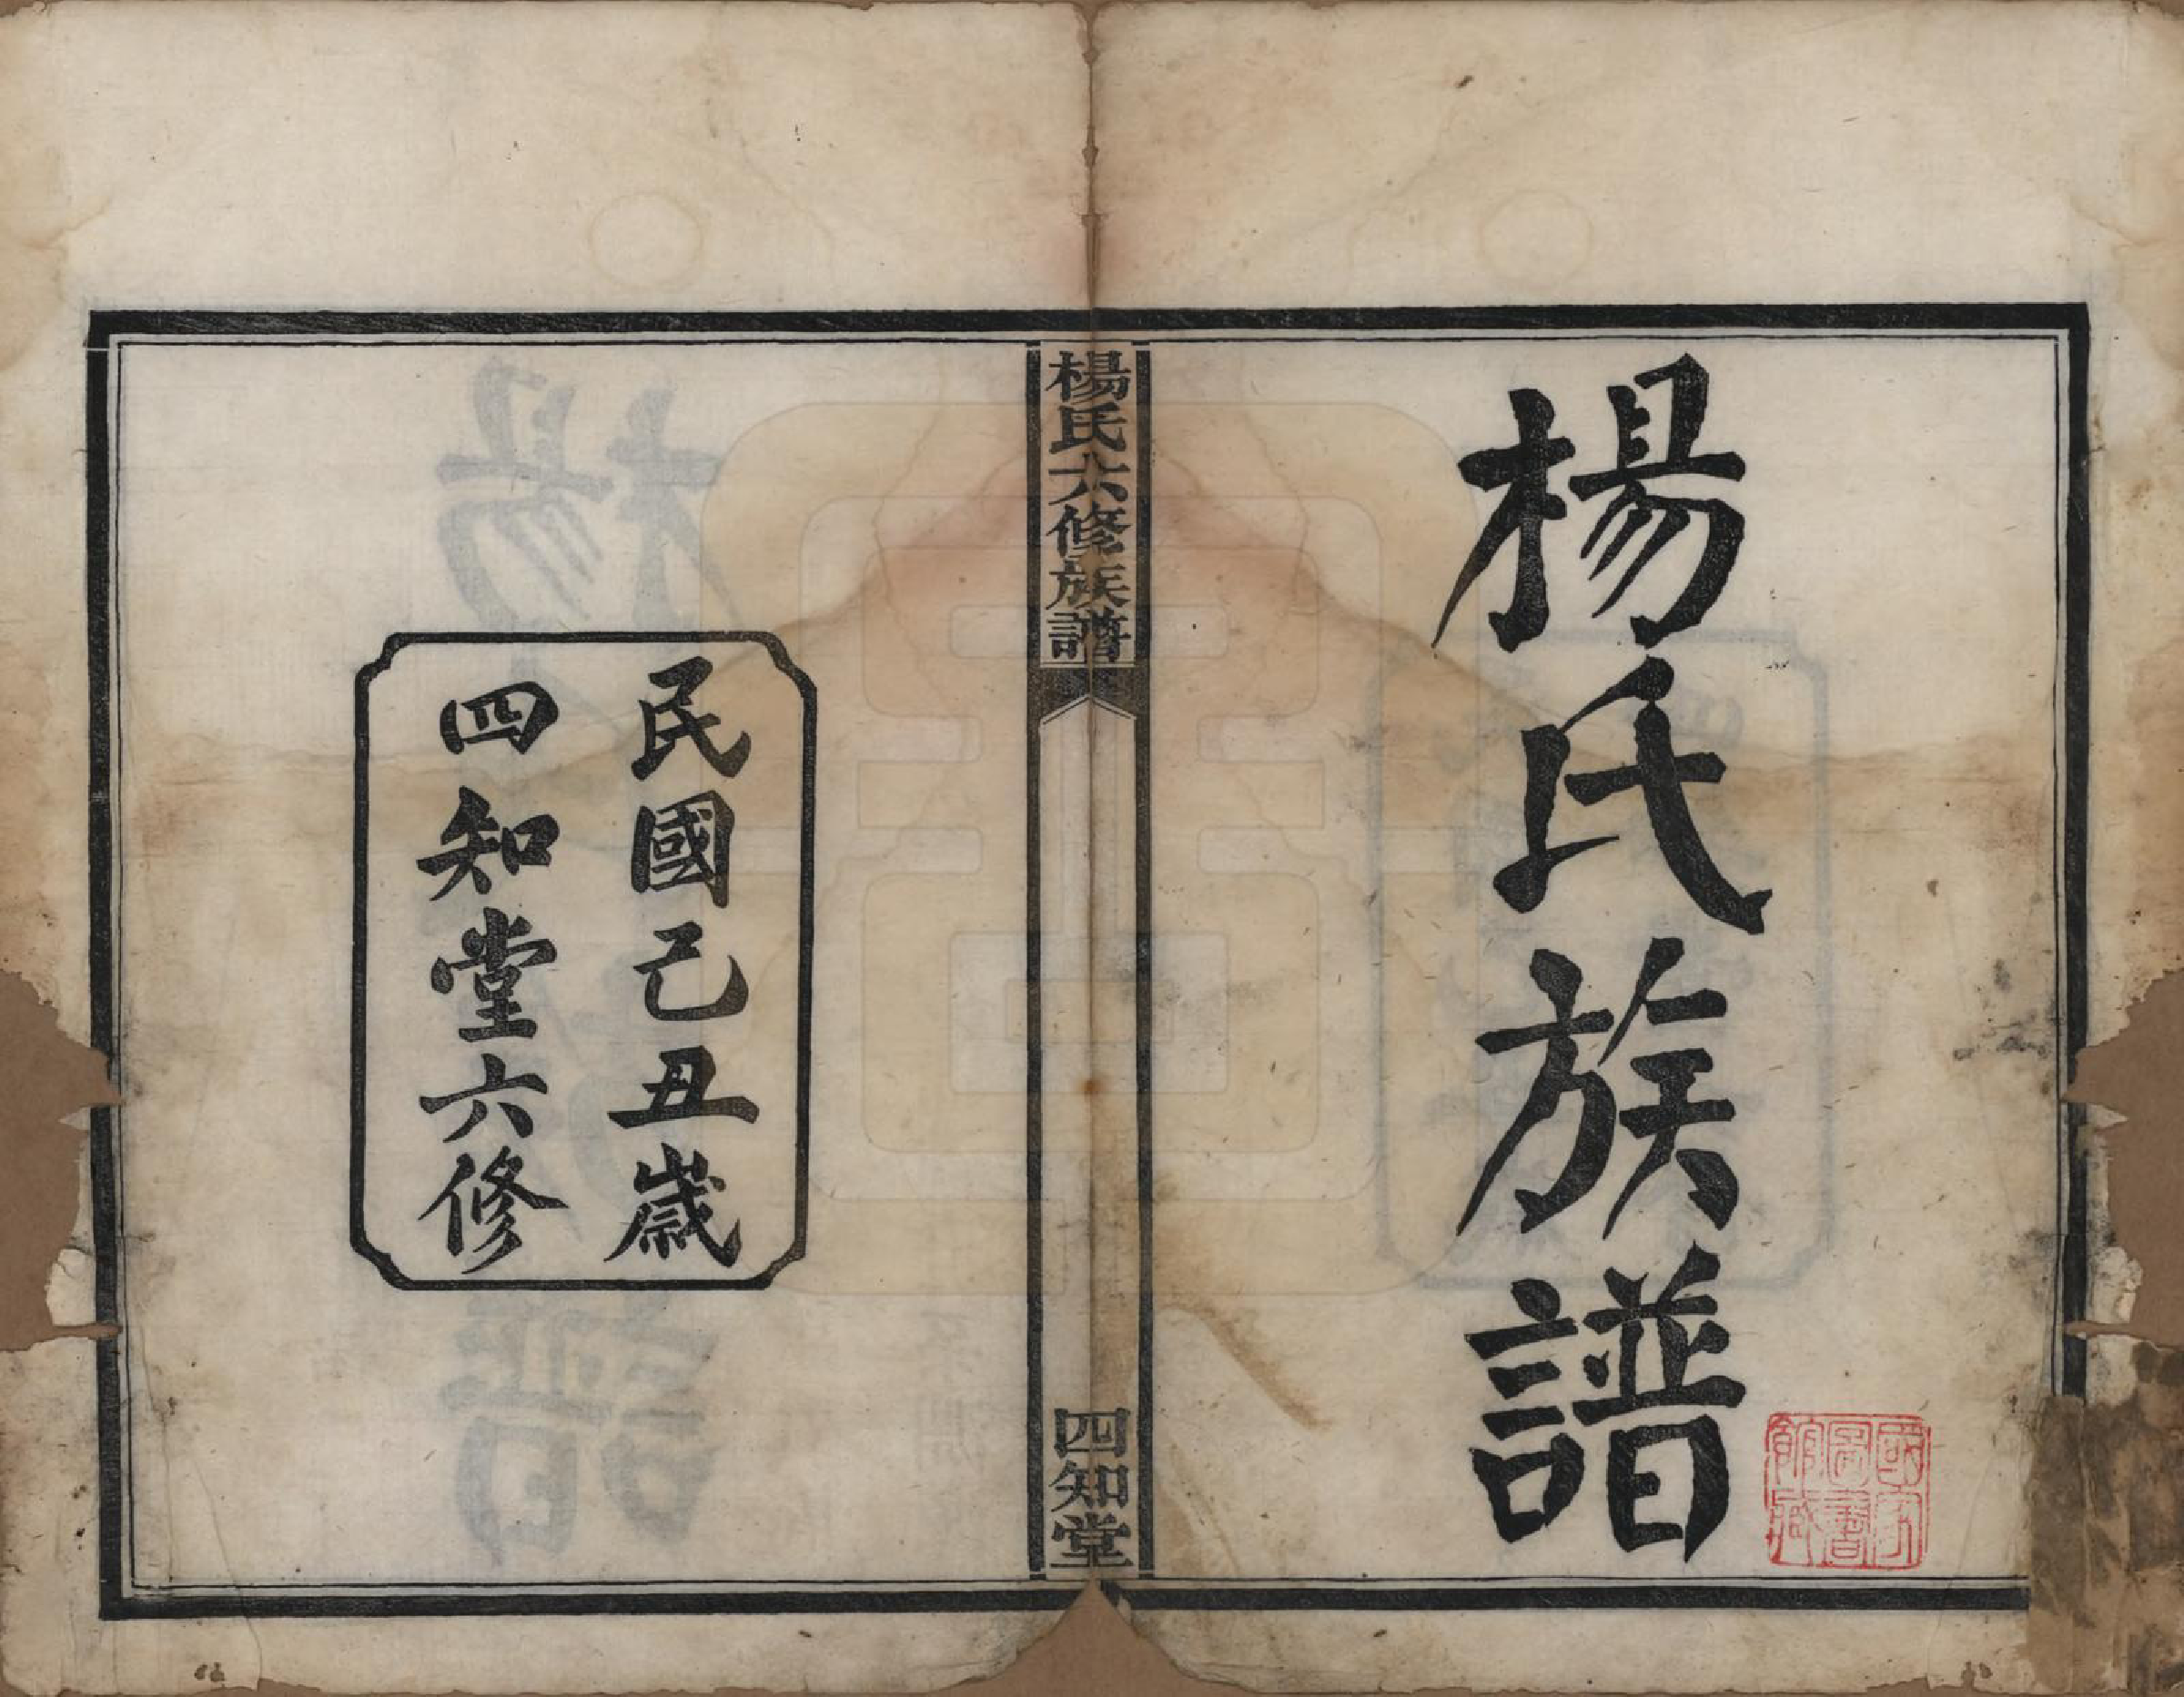 楊氏族譜
國家
圖書
館藏
楊氏六修族譜
四知堂
民國己丑歲
四知堂六修